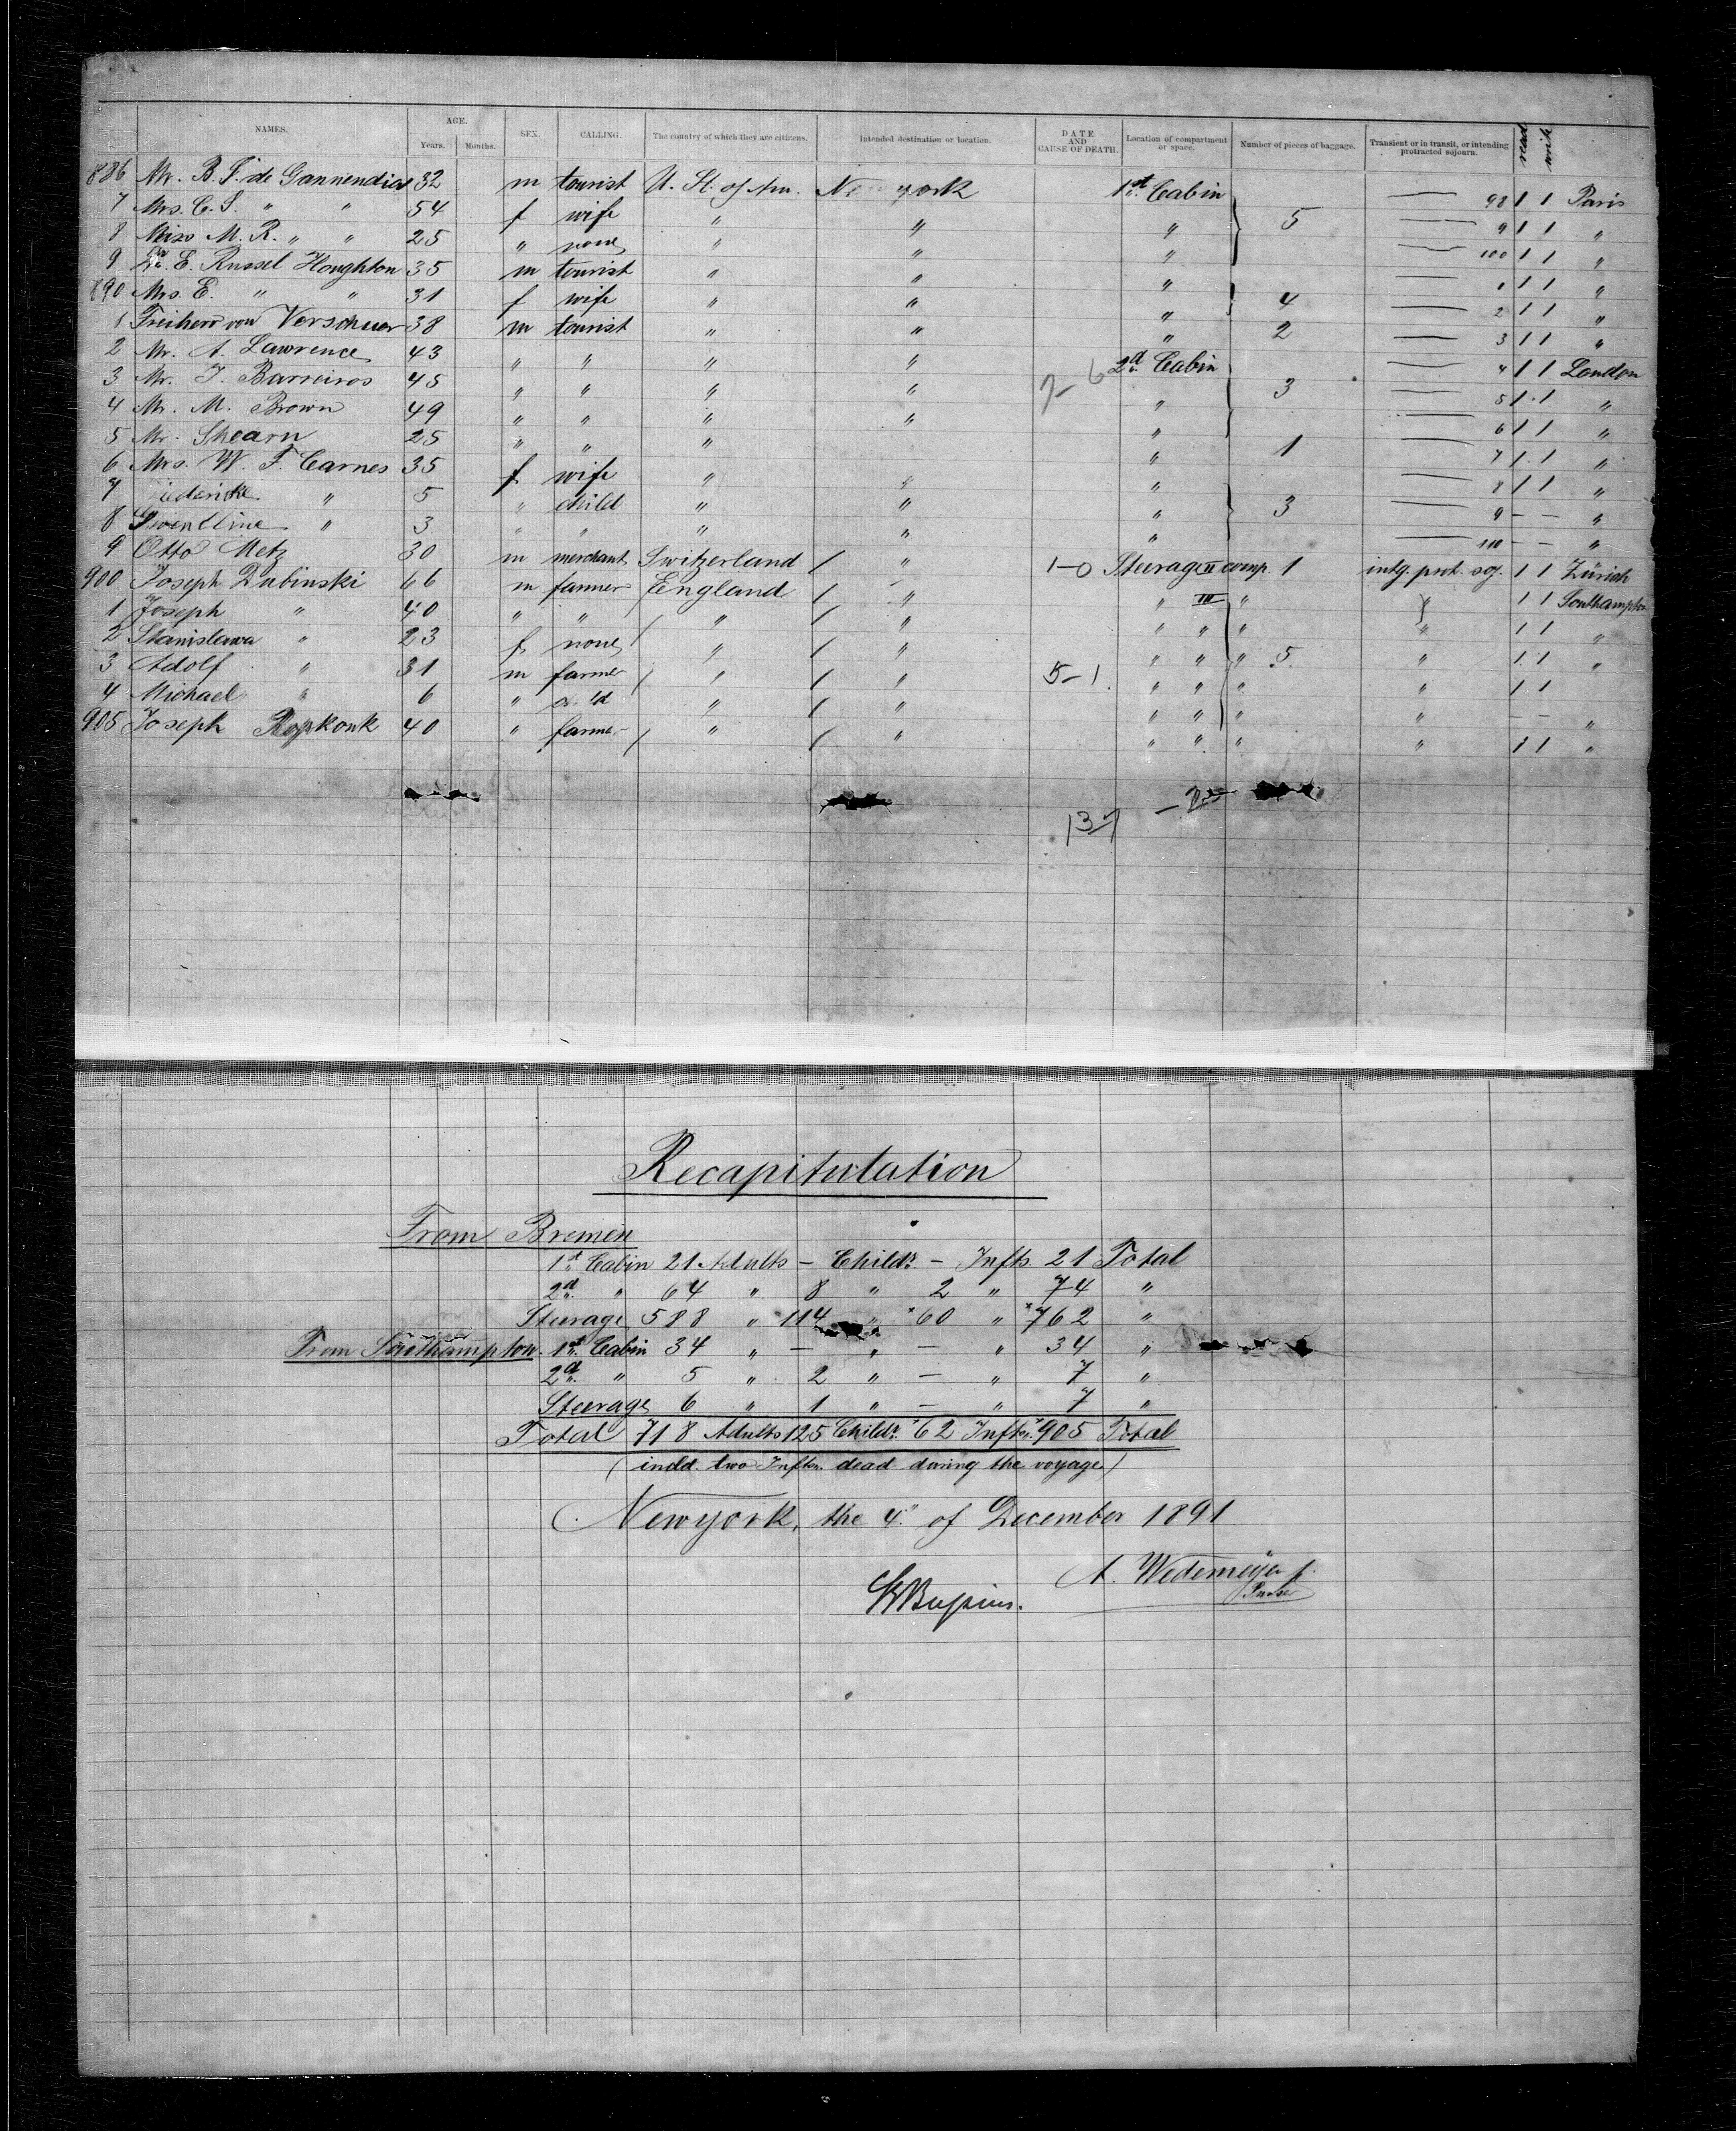 NAMES. AGE. Years. Months. SEX. CALLING. The country of which they are citizens. Intended destination or location. DATE AND CAUSE OF DEATH. Location of compartment or space. Number of pieces of baggage. Transient or in transit, or intending protracted sojourn. read write
886 Mr. B. F. de Gannendia 32 m tourist U. St. of Am. New york 1st Cabin — 98 1 1 Paris
7 Mrs. C. S. " " 54 f wife " " " 5 — 9 1 1 "
8 Miss M. R. " " 25 " none " " " — 100 1 1 "
9 E. Russel Houghton 35 m tourist " " " — 1 1 1 "
890 Mrs. E. " " 31 f wife " " " 4 — 2 1 1 "
1 Freiherr von Verschuer 38 m tourist " " " 2 — 3 1 1 "
2 Mr. A. Lawrence 43 " " " " 2d Cabin — 4 1 1 London
3 Mr. J. Barreiros 45 " " " " 7-6 " 3 — 5 1 1 "
4 Mr. M. Brown 49 " " " " " — 6 1 1 "
5 Mr. Shearn 25 " " " " 1 — 7 1 1 "
6 Mrs. W. F. Carnes 35 f wife " " " — 8 1 1 "
7 " 5 " child " " " 3 — 9 — — "
8 " 3 " " " " " — 110 — — "
9 Otto Metz 30 m merchant Switzerland / " 1-0 Steerage II comp. 1 intg. prot. soj. 1 1 Zürich
900 Joseph Dubinski 66 m farmer England / " " III " " 1 1 Southampton
1 Joseph " 40 " " / " / " " " " " 1 1 "
2 Stanislawa " 23 f none " / " " " " 5 " 1 1 "
3 Adolf " 31 m farmer / " / " 5-1. " " " " 1 1
4 Michael " 6 " " / " " " " " — — "
905 Joseph 40 " farmer / " / " " " " " 1 1 "
137
Recapitulation
From Bremen
1st Cabin 21 Adults — Childr. — Infts. 21 Total
2d " 64 " 8 " 2 " 74 "
Steerage 588 " 114 " *60 " *762 "
From Southampton. 1st Cabin 34 " — " — " 34 "
2d " 5 " 2 " — " 7 "
Steerage 6 " 1 " — " 7 "
Total 718 Adults 125 Childr. *62 Infts. *905 Total
(incld. two Infts. dead during the voyage)
Newyork, the 4." of December 1891
A. Wedemeyer
Purser